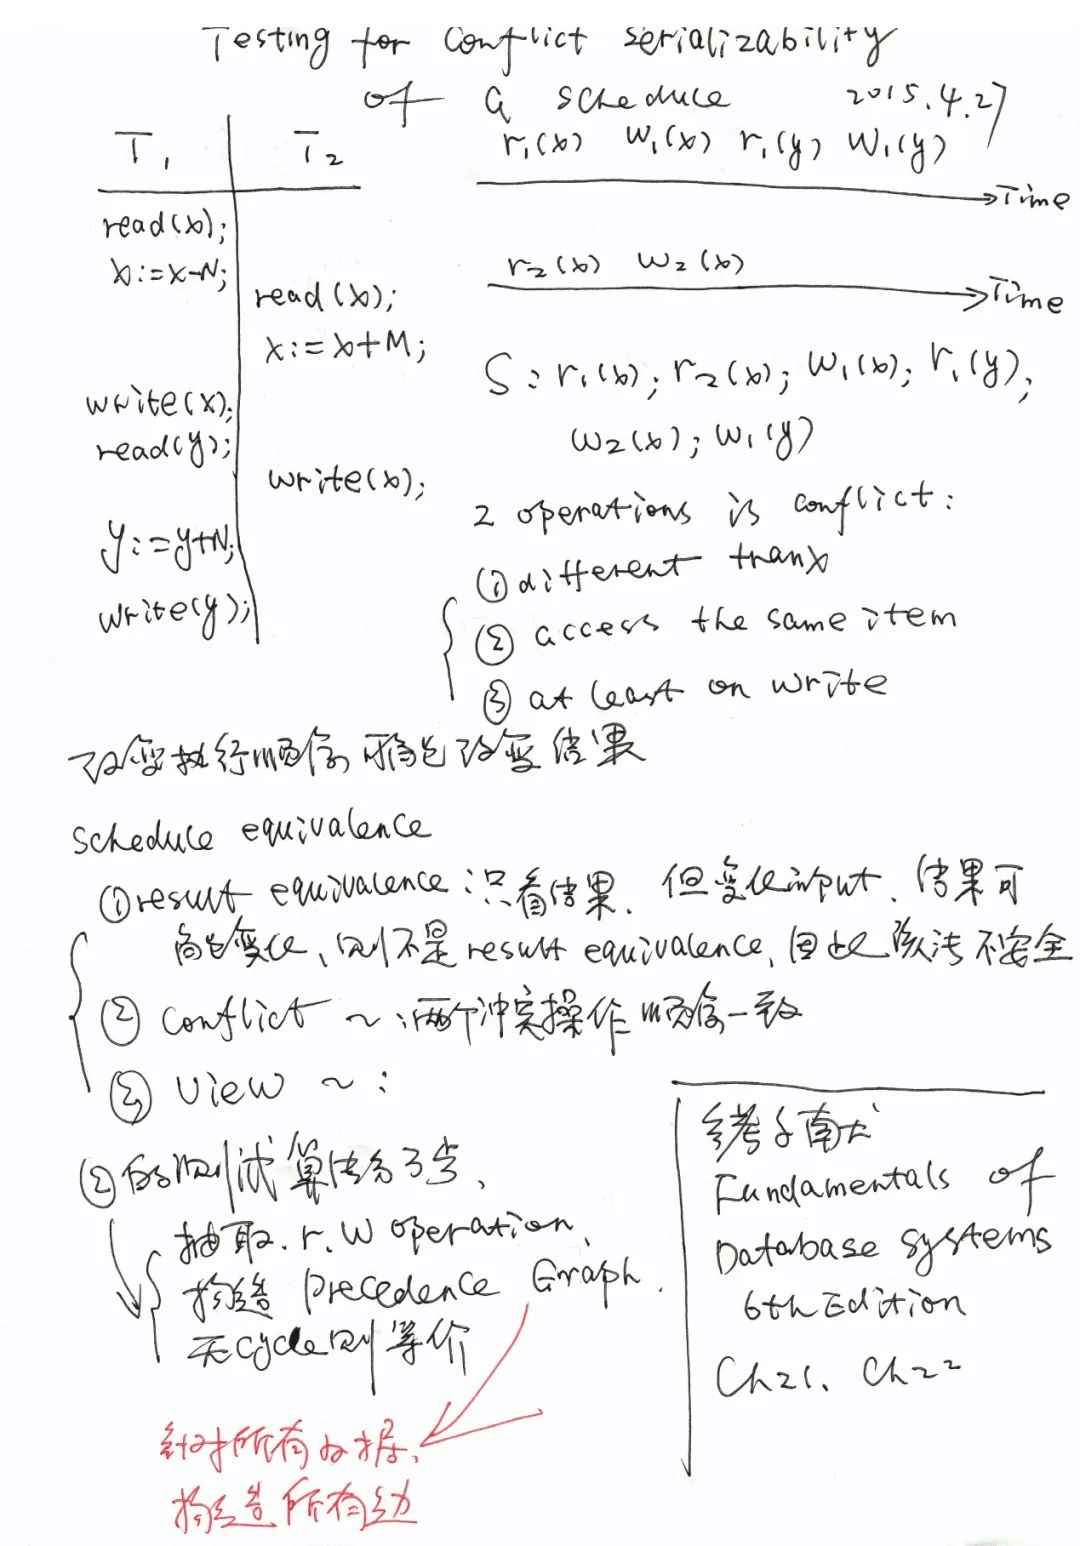 Testing for Conflict serializability
of a schedule 2015.4.27
T1 T2
read(x);
x:=x-N;
read(x);
x:=x+M;
write(x);
read(y);
write(x);
y:=y+N;
write(y);
r1(x) w1(x) r1(y) w1(y)
Time
r2(x) w2(x)
Time
S: r1(x); r2(x); w1(x); r1(y);
w2(x); w1(y)
2 operations is conflict:
① different tranx
② access the same item
③ at least on write
改变执行顺序,可能改变结果
schedule equivalence
① result equivalence:只看结果.但变化input、结果可
能变化、则不是result equivalence,因此该法不安全
② conflict ~:两个冲突操作顺序一致
③ view ~:
②的测试算法分3步、
抽取.r.w operation、
构造 Precedence Graph.
无cycle则等价
针对所有数据、
构造所有边
参考文献
Fundamentals of
Database systems
6th Edition
Ch21、Ch22